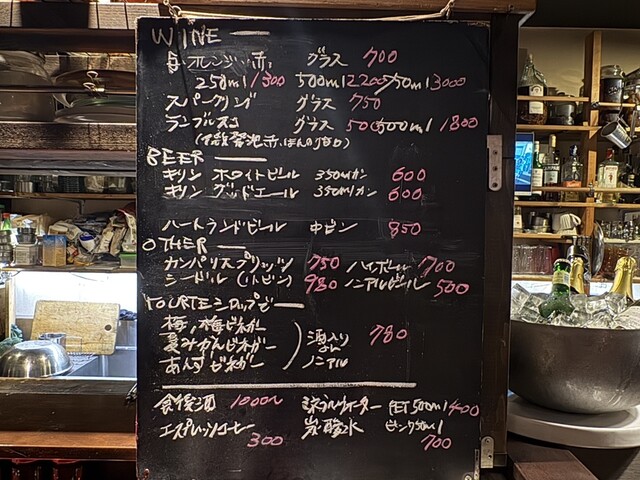 WINE
白・オレンジ・赤 グラス 700
250ml 1300 500ml 2200 750ml 3000
スパークリング グラス 750
ランブルスコ グラス 500 500ml 1800
(微発泡赤、ほんのり甘口)
BEER
キリン ホワイトビール 350mlカン 600
キリン グッドエール 350mlカン 600
ハートランドビール 中ビン 850
OTHER
カンパリスプリッツ 750 ハイボール 700
シードル (小ビン) 980 ノンアルビール 500
梅、梅ビネガー
夏みかんビネガー 酒入り 780
あんずビネガー ノンアル
食後酒 1000〜 ミネラルウォーター PET 500ml 400
エスプレッソコーヒー 300 炭酸水 700